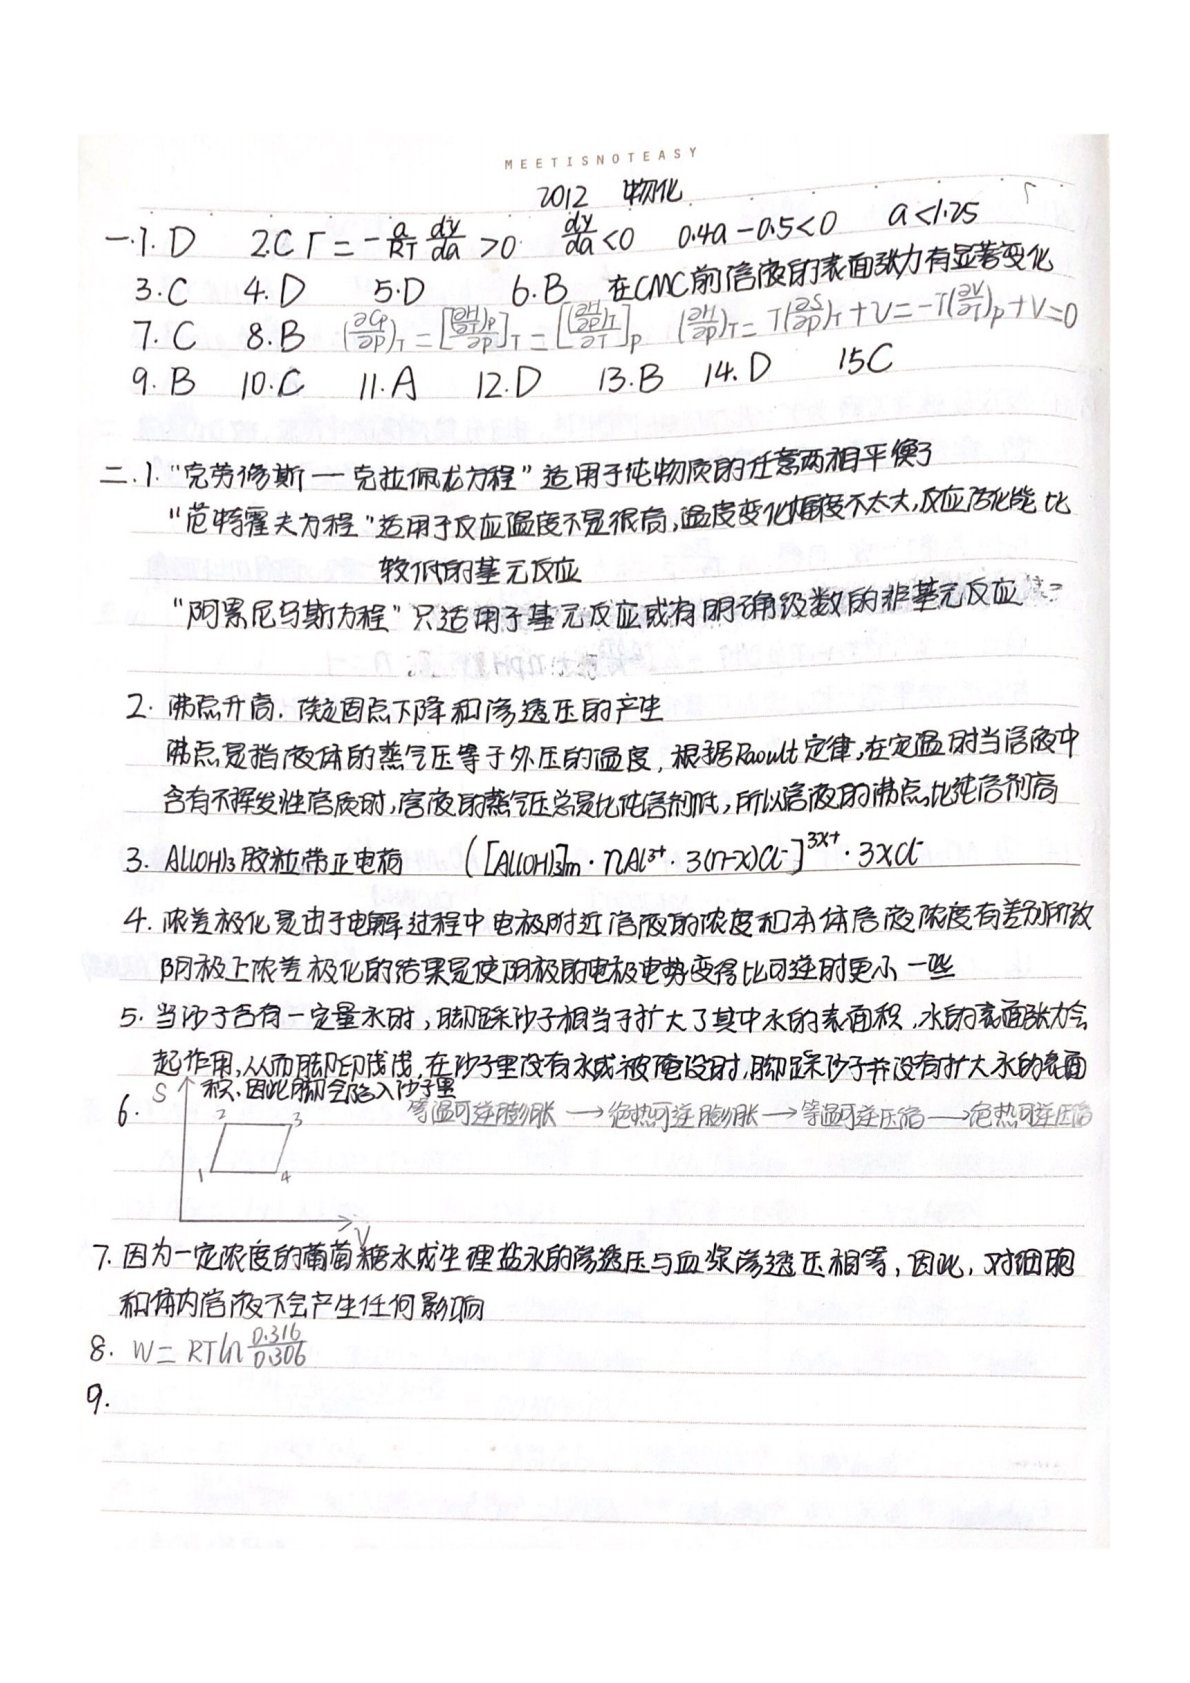 MEETISNOTEASY
2012 物化
一.1. D 2.C Γ = -a/RT dγ/da >0 dγ/da <0 0.4a-0.5<0 a<1.25
3. C 4. D 5.D 6.B 在CMC前溶液的表面张力有显著变化
7. C 8. B (∂Cp/∂p)T = [∂(∂H/∂T)p/∂p]T = [∂(∂H/∂p)T/∂T]p (∂H/∂p)T = T(∂S/∂p)T + V = -T(∂V/∂T)p + V = 0
9. B 10.C 11.A 12.D 13.B 14. D 15C
二.1. "克劳修斯—克拉佩龙方程" 适用于纯物质的任意两相平衡
"范特霍夫方程"适用于反应温度不是很高,温度变化幅度不太大,反应活化能比
较低的基元反应
"阿累尼乌斯方程"只适用于基元反应或有明确级数的非基元反应
2. 沸点升高.凝固点下降和渗透压的产生
沸点是指液体的蒸气压等于外压的温度,根据Raoult定律,在定温时当溶液中
含有不挥发性溶质时,溶液的蒸气压总是比纯溶剂低,所以溶液的沸点比纯溶剂高
3. Al(OH)3胶粒带正电荷 ([Al(OH)3]m·nAl³⁺·3(n-x)Cl⁻]³ˣ⁺·3xCl⁻
4. 浓差极化是由于电解过程中电极附近溶液的浓度和本体溶液浓度有差别所致
阴极上浓差极化的结果是使阴极的电极电势变得比可逆时更小一些
5. 当沙子含有一定量水时,脚踩沙子相当于扩大了其中水的表面积,水的表面张力会
起作用,从而脚印浅浅,在沙子里没有水或被淹没时,脚踩沙子并没有扩大水的表面
积,因此脚会陷入沙子里
6. S 等温可逆膨胀→绝热可逆膨胀→等温可逆压缩→绝热可逆压缩
2 3
1 4
V
7. 因为一定浓度的葡萄糖水或生理盐水的渗透压与血浆渗透压相等,因此,对细胞
和体内溶液不会产生任何影响
8. W= RTln 0.316/0.306
9.